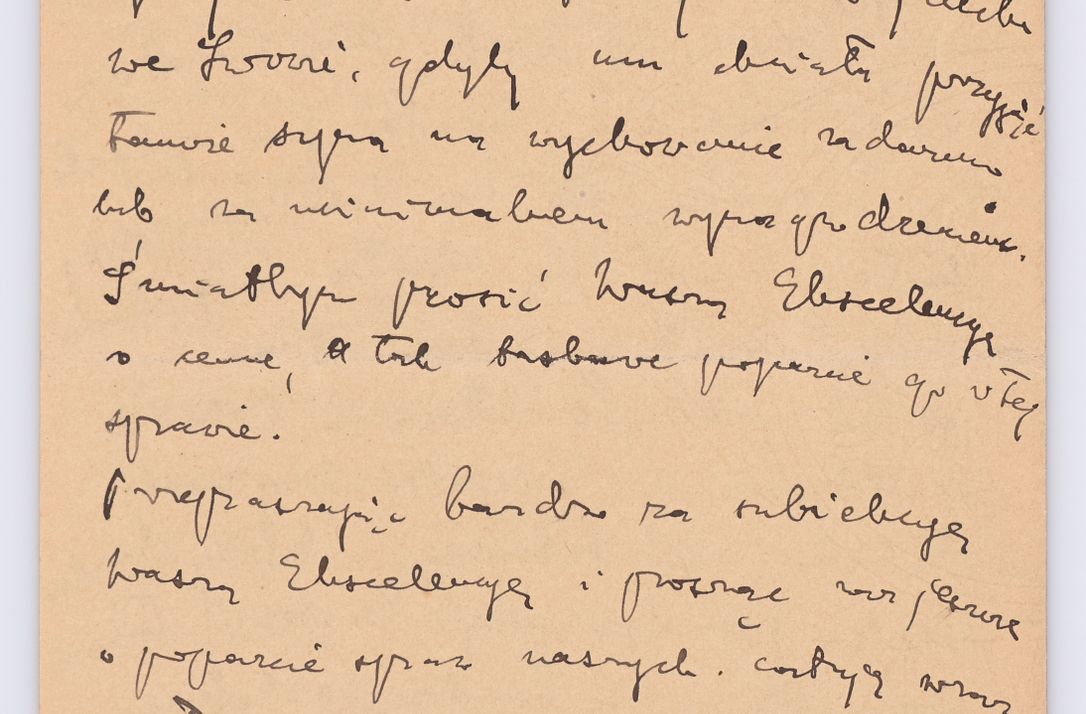 we Lwowie, gdyby mu chciała przyjąć
łaskawie syna na wychowanie za darmo
lub za minimalnem wynagrodzeniem.
Śmiałbym prosić Waszą Ekscelencyę
o cenne, a tak łaskawe poparcie go w tej
sprawie.
Przepraszając bardzo za subjekcyę
Waszą Ekscelencyę i prosząc raz jeszcze
o poparcie spraw naszych.